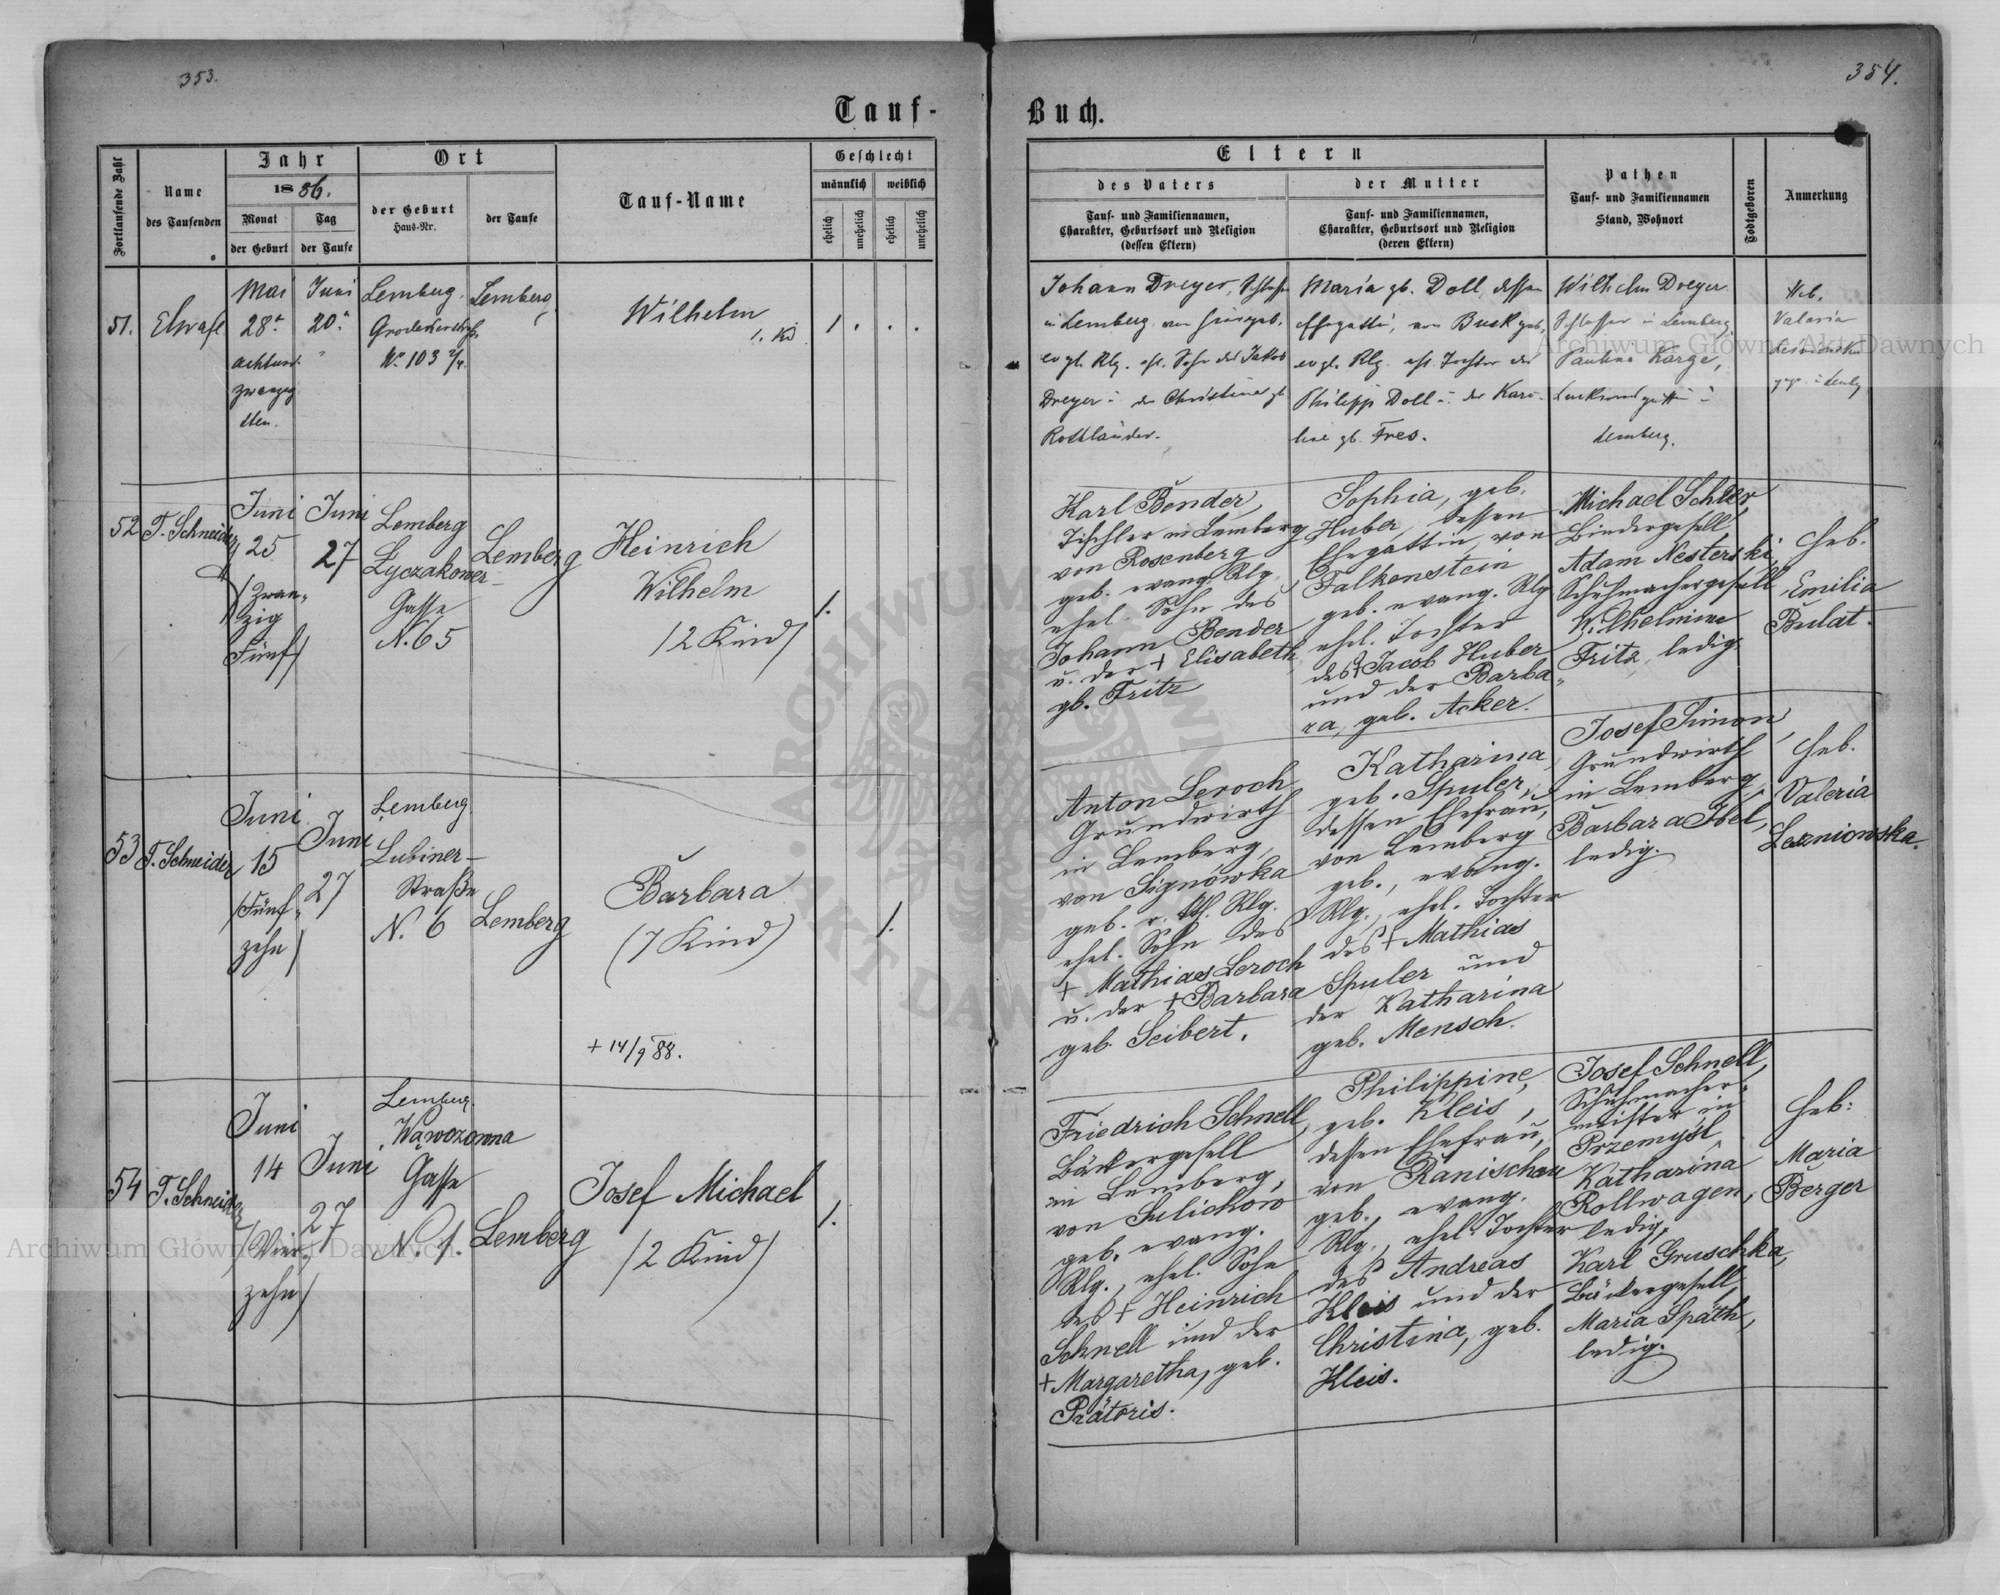 353.
354.
Tauf-
Buch.
Fortlaufende Zahl
Name
des Taufenden
Jahr
1886.
Monat
der Geburt
Tag
der Taufe
Ort
der Geburt
Haus-Nr.
der Taufe
Tauf-Name
Geschlecht
männlich
weiblich
ehelich
unehelich
ehelich
unehelich
Eltern
des Vaters
Tauf- und Familiennamen,
Charakter, Geburtsort und Religion
(dessen Eltern)
der Mutter
Tauf- und Familiennamen,
Charakter, Geburtsort und Religion
(deren Eltern)
Pathen
Tauf- und Familiennamen
Stand, Wohnort
Todtgeboren
Anmerkung
51.
Mai
28.
achtund
zwanzig
sten.
Juni
20.
Lemberg.
No. 103 2/4
Lemberg
Wilhelm
1. Kd
1
Johann Dreyer,
in Lemberg
evgl. Rlg. ehl. Sohn des Jakob
Dreyer u. der Christina gb
Rottländer.
Maria gb. Doll, dessen
Ehegattin, von Busk geb.
evgl. Rlg. ehl. Tochter des
Philipp Doll u. der Karo-
line gb. Fres.
Wilhelm Dreyer
Schlosser in Lemberg
Pauline Karge,
Lemberg.
Heb.
Valeria
52
T. Schneider
Juni
25
(Zwan-
zig
Fünf)
Juni
27
Lemberg
Łyczakower-
Gasse
N. 65
Lemberg
Heinrich
Wilhelm
(2 Kind)
1.
Karl Bender,
Tischler in Lemberg
von Rosenberg
geb. evang. Rlg.
ehel. Sohn des
Johann Bender
u. der + Elisabeth,
gb. Fritz
Sophia, geb.
Huber, dessen
Ehegattin, von
Falkenstein
geb. evang. Rlg
ehl. Tochter
des + Jacob Huber
und der Barba-
ra, geb. Acker.
Michael
Bindergesell
Adam Nesterski,
Schuhmachergesell,
Wilhelmine
Fritz, ledig.
Heb.
Emilia
Bulat.
53
T. Schneider
Juni
15
(Fünf-
zehn)
Juni
27
Lemberg
Lubiner-
Straße
N. 6
Lemberg
Barbara
(7 Kind)
+ 14/9 88.
1.
Anton Leroch
Grundwirth
in Lemberg,
von Signówka
geb. r. kth. Rlg.
ehel. Sohn des
+ Mathias Leroch
u. der + Barbara
geb. Seibert.
Katharina,
geb. Spuler,
dessen Ehefrau,
von Lemberg
geb., evang.
Rlg., ehel. Tochter
des + Mathias
Spuler und
der Katharina
geb. Mensch.
Josef Simon,
Grundwirth
in Lemberg,
Barbara Ibel,
ledig.
Heb.
Valeria
Lezniowska.
54
T. Schneider
Juni
14
(Vier-
zehn)
Juni
27
Lemberg.
Wąwozowna
Gasse
N. 1.
Lemberg
Josef Michael
(2 Kind)
1.
Friedrich Schnell,
Bäckergesell
in Lemberg,
von Sulichów
geb. evang.
Rlg., ehel. Sohn
des + Heinrich
Schnell und der
+ Margaretha, geb.
Prätoris.
Philippine,
geb. Kleis,
dessen Ehefrau,
von Ranischau
geb., evang.
Rlg., ehel. Tochter
des Andreas
Kleis und der
Christina, geb.
Kleis.
Josef Schnell,
Schuhmacher-
meister in
Przemyśl
Katharina
Rollwagen,
ledig,
Karl Gruschka,
Bäckergesell,
Maria Späth,
ledig.
Heb:
Maria
Berger
Archiwum Główne Akt Dawnych
Archiwum Główne Akt Dawnych